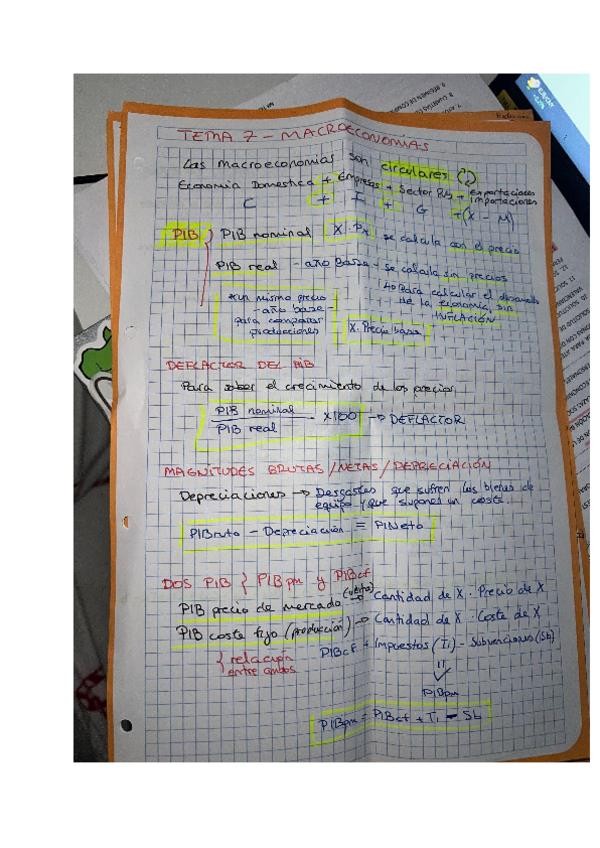 TEMA 7 - MACROECONOMÍAS
Las macroeconomías son circulares
Economía Domestica + Empresas + Sector Pub + exportaciones
importaciones
C + I + G +(X - M)
PIB } PIB nominal X · Px se calcula con el precio
PIB real - año Base - se calcula sin precios
↳ Para calcular el desarrollo
de la economía sin
INFLACIÓN
*un mismo precio
- año base -
para comparar
producciones
X · Precio base
DEFLACTOR DEL PIB
Para saber el crecimiento de los precios
PIB nominal
PIB real
x100 → DEFLACTOR
MAGNITUDES BRUTAS/NETAS/DEPRECIACIÓN
Depreciaciones → Desgastes que sufren los bienes de
equipo y que supone un coste.
PIBruto - Depreciación = PINeto
DOS PIB { PIBpm y PIBcf
PIB precio de mercado (venta) → Cantidad de X · Precio de X
PIB coste fijo (producción) → Cantidad de X · Coste de X
{ relación
entre ambos
PIBcf + Impuestos (Ti) - Subvenciones (Sb)
PIBpm
PIBpm = PIBcf + Ti - Sb